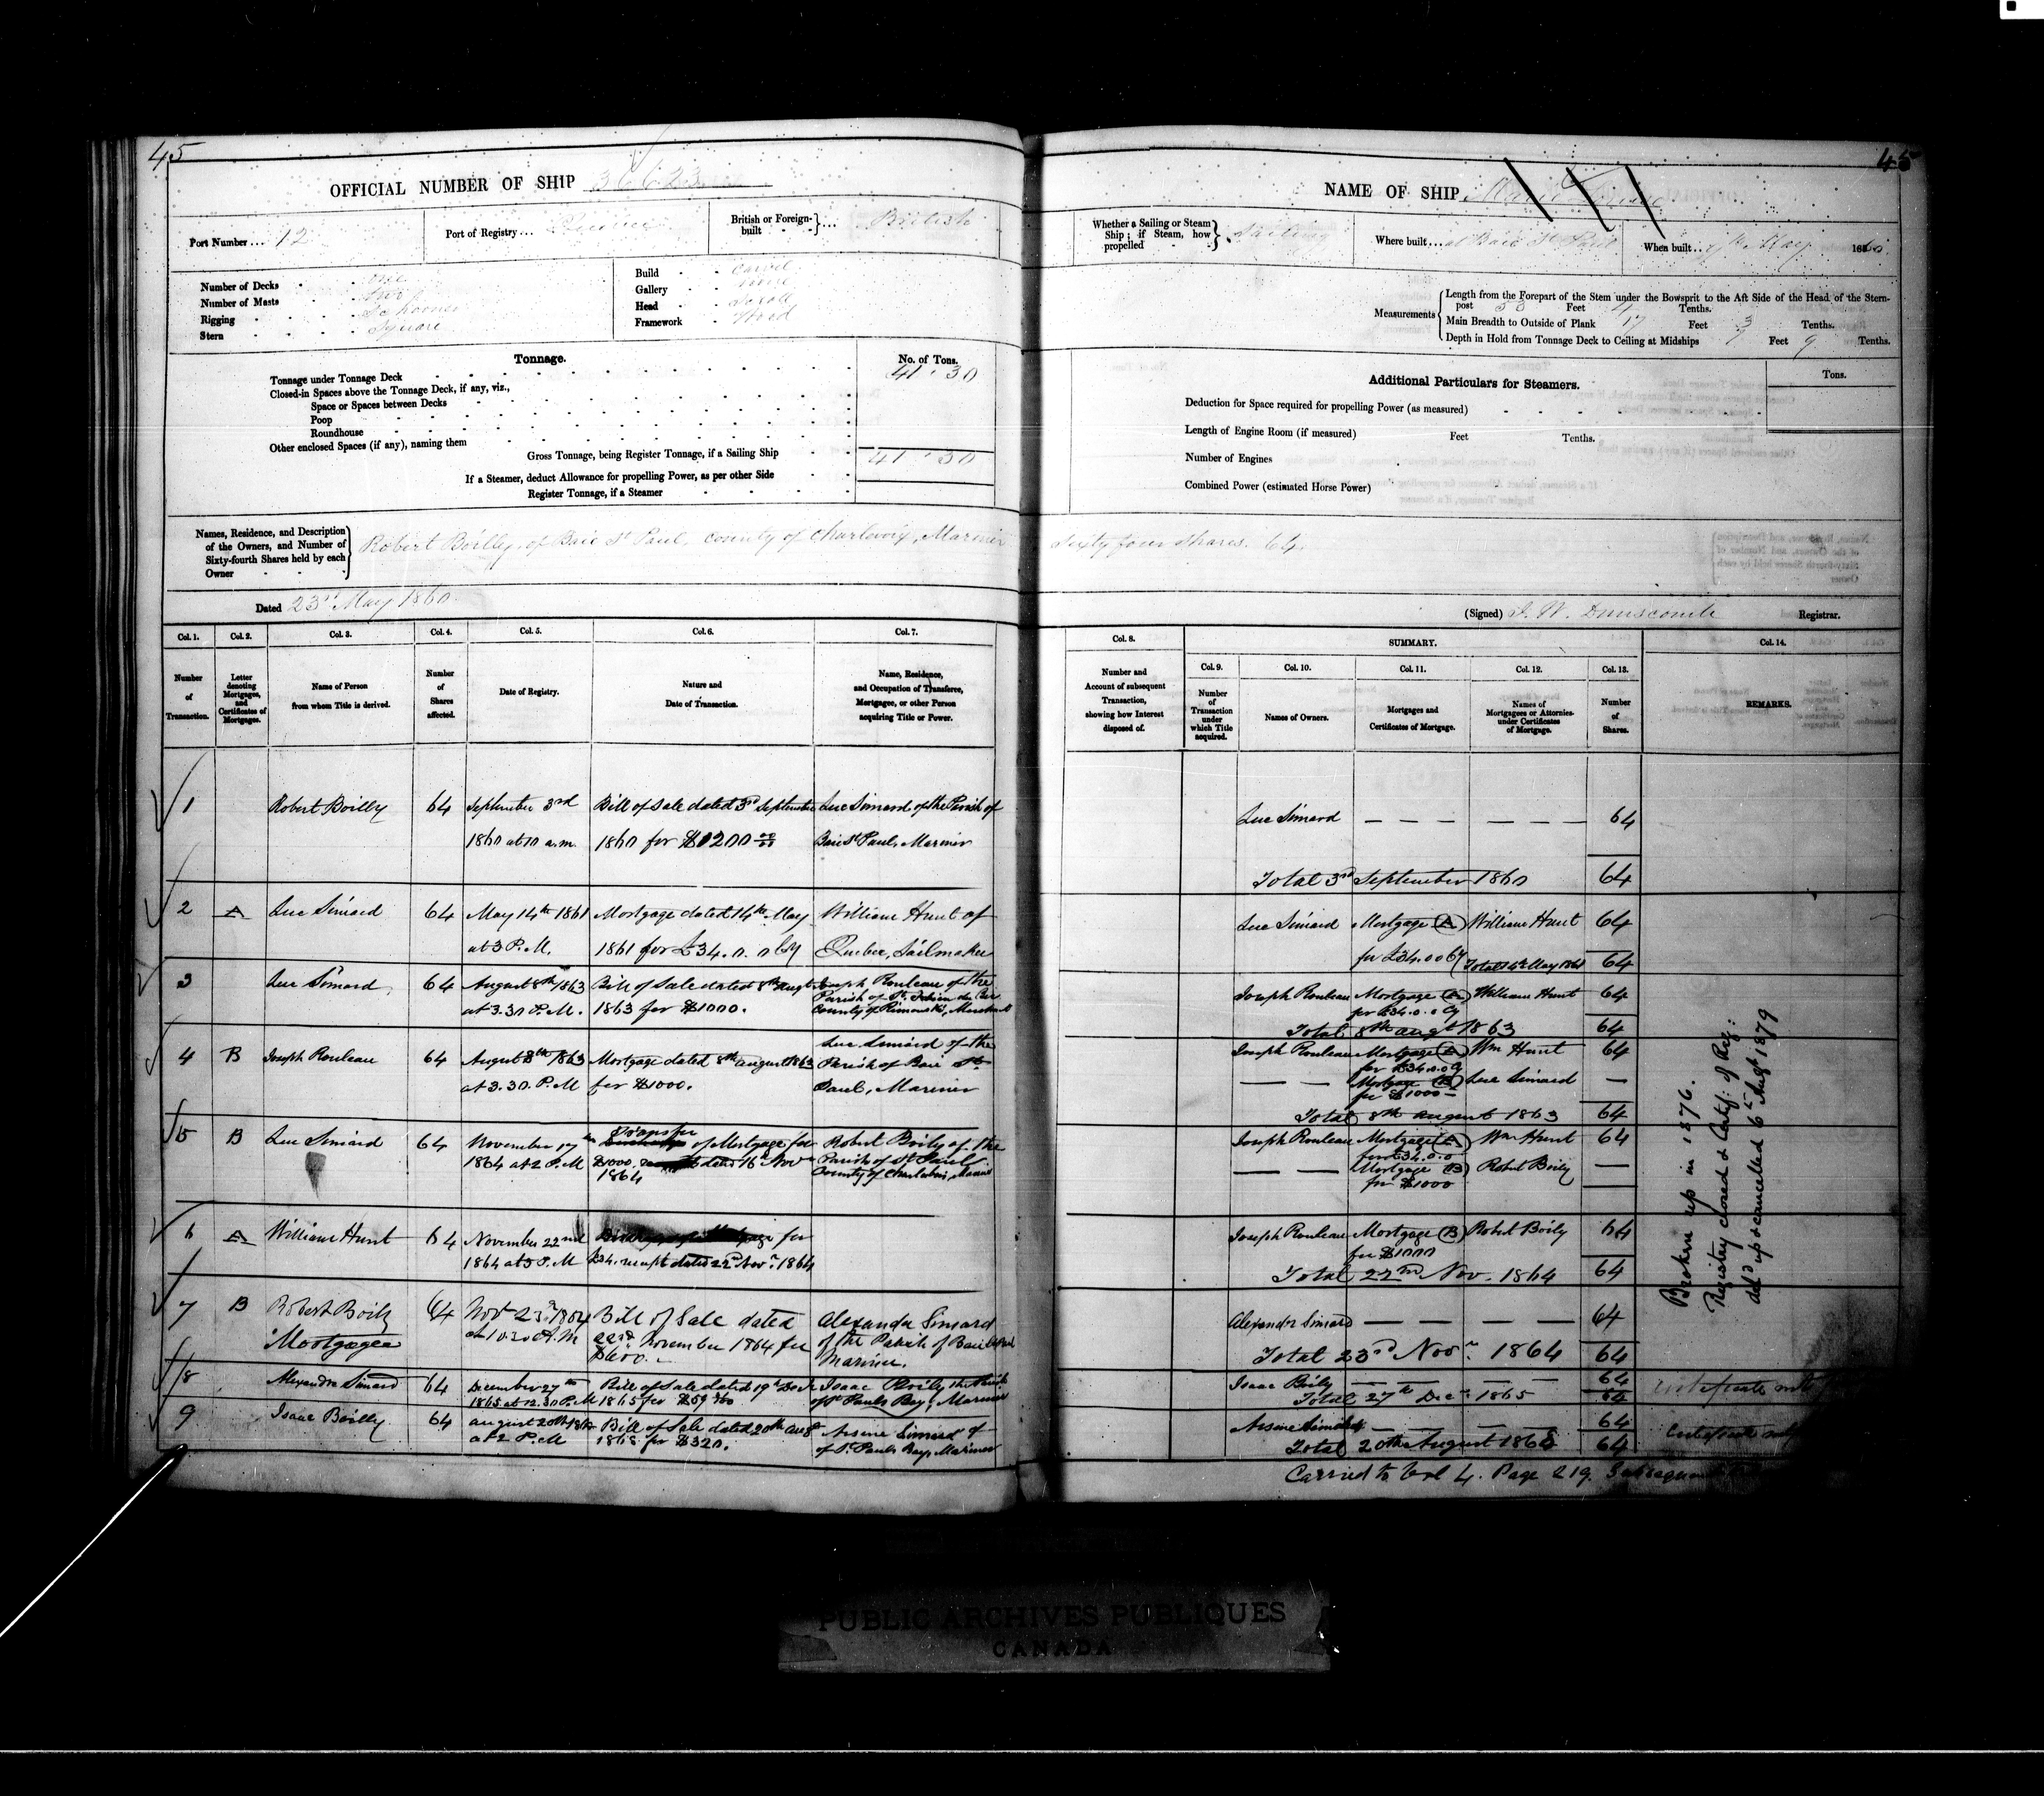 45
OFFICIAL NUMBER OF SHIP 36623
Port Number ... 12
Port of Registry ... Quebec
British or Foreign-built } ... British
Number of Decks One
Number of Masts Two
Rigging Schooner
Stern Square
Build Carvel
Gallery None
Head Scroll
Framework Wood
Tonnage.
No. of Tons.
Tonnage under Tonnage Deck 41.30
Closed-in Spaces above the Tonnage Deck, if any, viz.,
Space or Spaces between Decks
Poop
Roundhouse
Other enclosed Spaces (if any), naming them
Gross Tonnage, being Register Tonnage, if a Sailing Ship 41.30
If a Steamer, deduct Allowance for propelling Power, as per other Side
Register Tonnage, if a Steamer
Names, Residence, and Description of the Owners, and Number of Sixty-fourth Shares held by each Owner
Robert Boilly, of Baie St Paul, county of Charlevoix, Mariner
Dated 23rd May 1860
Col. 1. Col. 2. Col. 3. Col. 4. Col. 5. Col. 6. Col. 7.
Number of Transaction.
Letter denoting Mortgages, and Certificates of Mortgages.
Name of Person from whom Title is derived.
Number of Shares affected.
Date of Registry.
Nature and Date of Transaction.
Name, Residence, and Occupation of Transferee, Mortgagee, or other Person acquiring Title or Power.
1 Robert Boilly 64 September 3rd Bill of Sale dated 3rd September Luc Simard of the Parish of
1860 at 10 a.m. 1860 for $1200 00/00 Baie St Paul, Mariner
2 A Luc Simard 64 May 14th 1861 Mortgage dated 14th May William Hunt of
at 3 P.M. 1861 for £34.0.0 Cy Quebec, Sailmaker
3 Luc Simard 64 August 8th 1863 Bill of Sale dated 8th Augt Joseph Rouleau of the
Parish of St. Fabien
at 3.30 P.M. 1863 for $1000. County of Rimouski,
4 B Joseph Rouleau 64 August 8th 1863 Mortgage dated 8th august 1863 Luc Simard of the
Parish of Baie St
at 3.30. P.M for $1000. Paul, Mariner
5 B Luc Simard 64 November 17th Transfer of Mortgage for Robert Boily of the
1864 at 2 P.M $1000. dated 16th Nov Parish of St Paul
1864 County of
6 A William Hunt 64 November 22nd Discharge of Mortgage for
1864 at 3 P.M £34. receipt dated 22nd Novr. 1864
7 B Robert Boily 64 Novr 23rd 1864 Bill of Sale dated Alexander Simard
Mortgagee at 10.30 A.M 22nd November 1864 for of the Parish of Baie St Paul
$600. Mariner.
8 Alexandre Simard 64 December 27th Bill of Sale dated 19th Decr Isaac Boily
1865 at 12.30 P.M 1865 for of St Pauls Bay, Mariner
9 Isaac Boilly 64 august 20th 1868 Bill of Sale dated 20th aug Arsene Simard of
at 2 P.M 1868 for $320. of St Pauls Bay, Mariner
45
NAME OF SHIP Marie
Whether a Sailing or Steam Ship; if Steam, how propelled } Sailing
Where built ... at Baie St Paul
When built ... May 1860
Measurements
Length from the Forepart of the Stem under the Bowsprit to the Aft Side of the Head of the Stern-
post 53 Feet 4 Tenths.
Main Breadth to Outside of Plank 17 Feet 3 Tenths.
Depth in Hold from Tonnage Deck to Ceiling at Midships 7 Feet 9 Tenths.
Additional Particulars for Steamers.
Tons.
Deduction for Space required for propelling Power (as measured)
Length of Engine Room (if measured) Feet Tenths.
Number of Engines
Combined Power (estimated Horse Power)
Sixty four shares. 64.
(Signed) J. W. Dunscomb Registrar.
Col. 8. SUMMARY. Col. 14.
Col. 9. Col. 10. Col. 11. Col. 12. Col. 13.
Number and Account of subsequent Transaction, showing how Interest disposed of.
Number of Transaction under which Title acquired.
Names of Owners.
Mortgages and Certificates of Mortgage.
Names of Mortgagees or Attornies under Certificates of Mortgage.
Number of Shares.
REMARKS.
Luc Simard — — — — — — 64
Total 3rd September 1860 64
Luc Simard Mortgage (A) William Hunt 64
for £34.00 Cy Total 14th May 1861 64
Joseph Rouleau Mortgage (A) William Hunt 64
for £34.0.0 Cy
Total 8th augt 1863 64
Joseph Rouleau Mortgage (A) Wm Hunt 64
for £34.0.0 Cy
— — Mortgage (B) Luc Simard —
for $1000 —
Total 8th august 1863 64
Joseph Rouleau Mortgage (A) Wm Hunt 64
for £34.0.0
— — Mortgage (B) Robert Boily —
for $1000
Joseph Rouleau Mortgage (B) Robert Boily 64
for $1000
Total 22nd Nov. 1864 64
Alexandre Simard — — — — — 64
Total 23rd Novr. 1864 64
Isaac Boily — — — — 64
Total 27th Decr. 1865 64
Arsene Simard — — — — 64
Total 20th August 1868 64
Carried to Vol 4. Page 219.
Broken up in 1876.
Registry closed & Certif: of Reg:
del'd up & cancelled 6th Augt 1879
Certificate
Certificate
PUBLIC ARCHIVES PUBLIQUES
CANADA